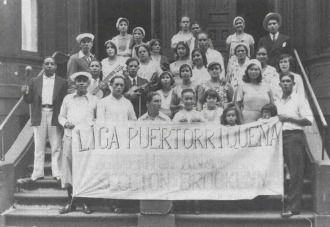 LIGA PUERTORRIQUEÑA
HISPANA
SECCION BROOKLYN